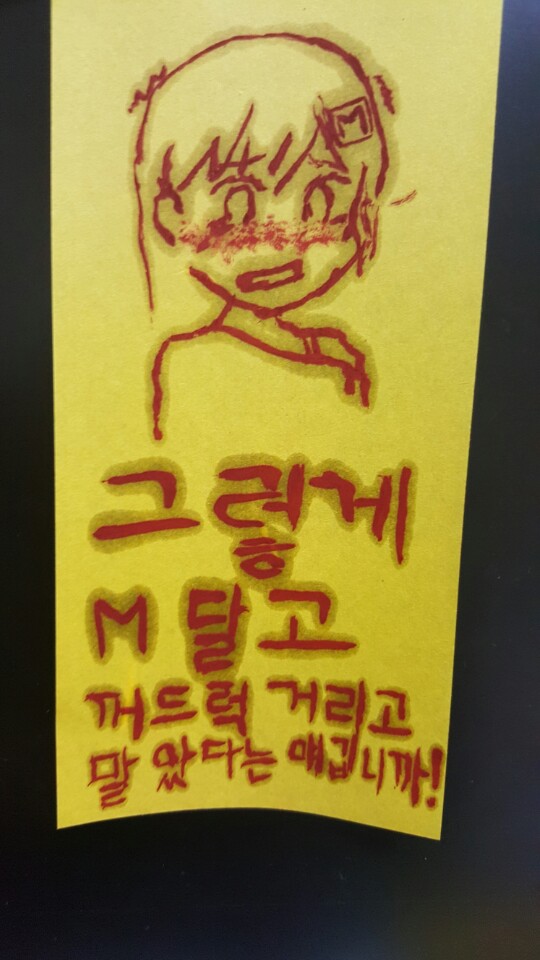 M
그렇게
M 달고
꺼드럭 거리고
말 았다는 얘깁니까!